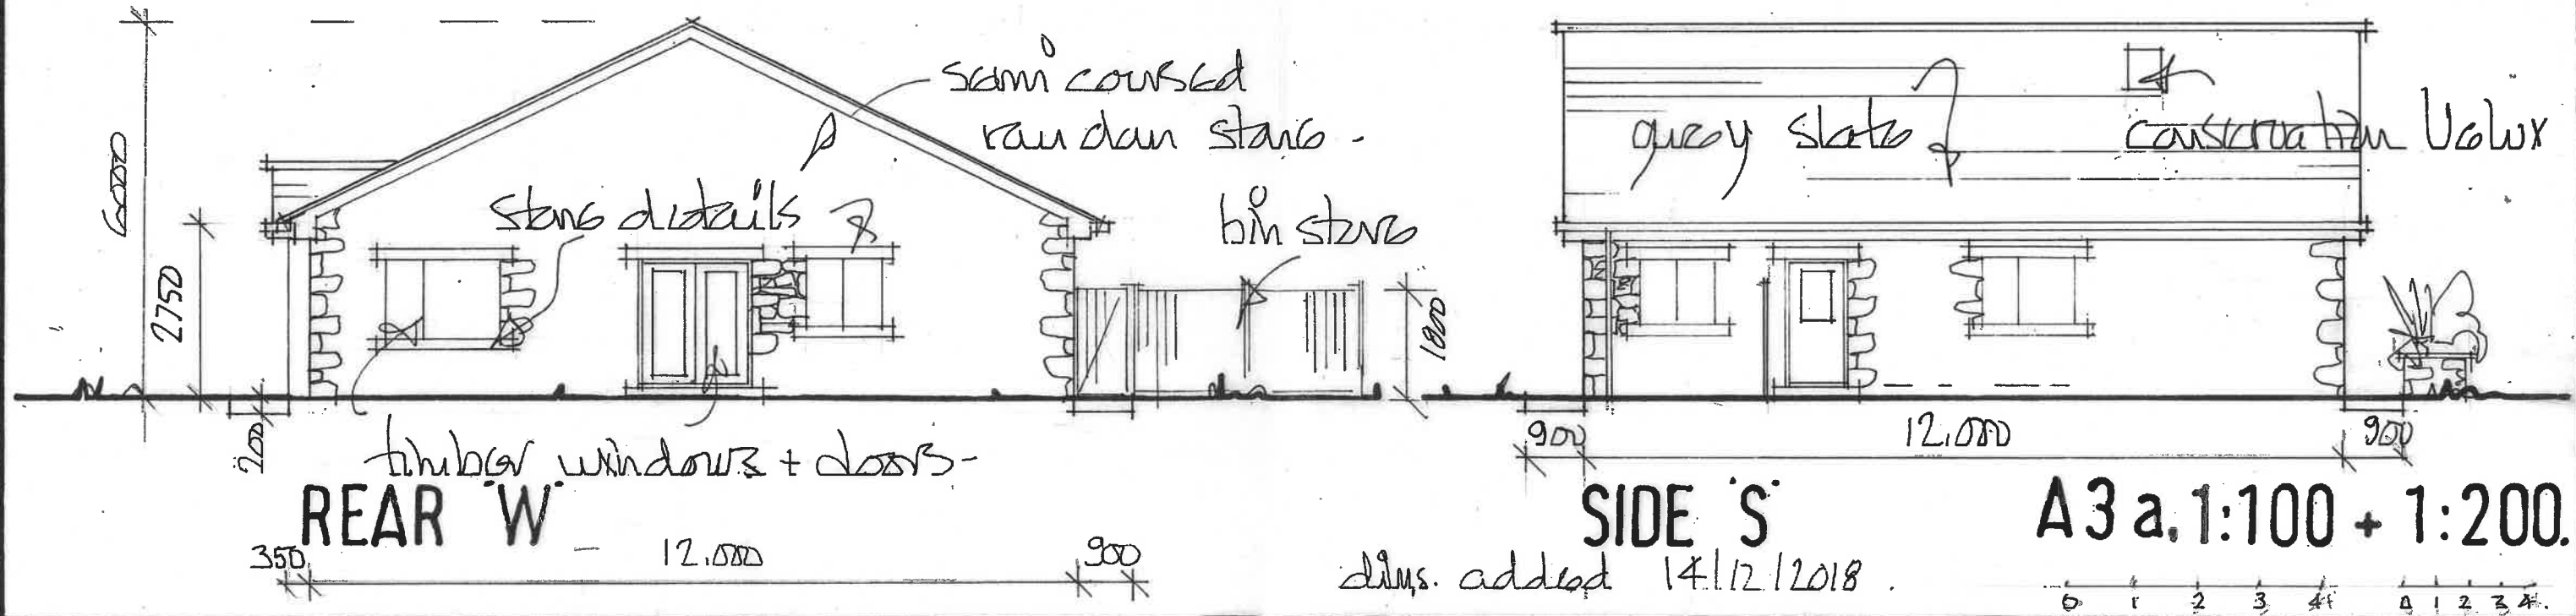 6000
2750
200
semi coursed
random stone -
stone details
bin store
1800
timber windows + doors-
REAR 'W'
350 12.000 900
grey slate
conservation Velux
900 12.000 900
SIDE 'S'
A3 a. 1:100 + 1:200.
dims. added 14/12/2018.
0 1 2 3 4
0 1 2 3 4.